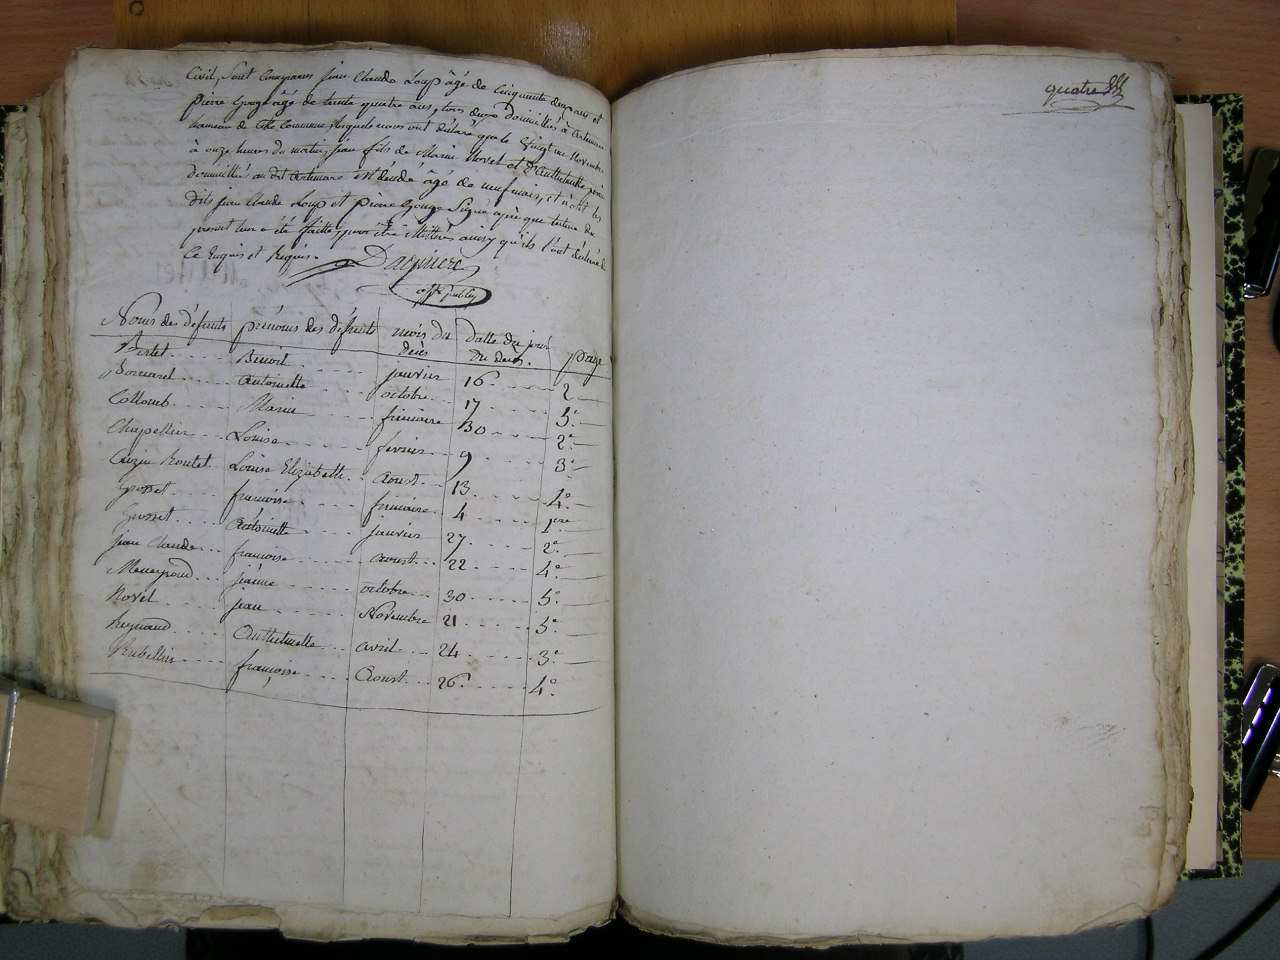 Civil, sont Comparus jean Claude Loup âgé de Cinquante deux ans et
pierre gouge âgé de trente quatre ans, tous deux Domiciliés à artemare
hameau de cette Commune, lesquels nous ont déclaré que le vingt un Novembre
à onze heures du matin, jean fils de Marin Novel et
domiciliés au dit artemare est décédé âgé de neuf mois, et n'ont les
dits jean Claude Loup et pierre gouge Signé après que lecture du
present leur a été faitte, pour être illittrés ainsy qu'ils l'ont déclaré de
Ce Enquis et Requis.
off. public
Noms des défunts prénoms des défunts mois du décès datte du jour du décès. page
Bertet Benoit janvier 16 2
antoinette octobre 17 5e
Collomb Marie frimaire 30 2e
Chapellus Louise fevrier 9 3e
Louise Elizabette Aoust 13 4e
Grosset françoise frimaire 4 1ere
Grosset Antoinette janvier 27 2e
jean Claude françoise aoust 22 4e
jeanne octobre 30 5e
Novel jean Novembre 21 5e
Reynaud Anthelmette avril 24 3e
Rubellin françoise Aoust 26 4e
quatre